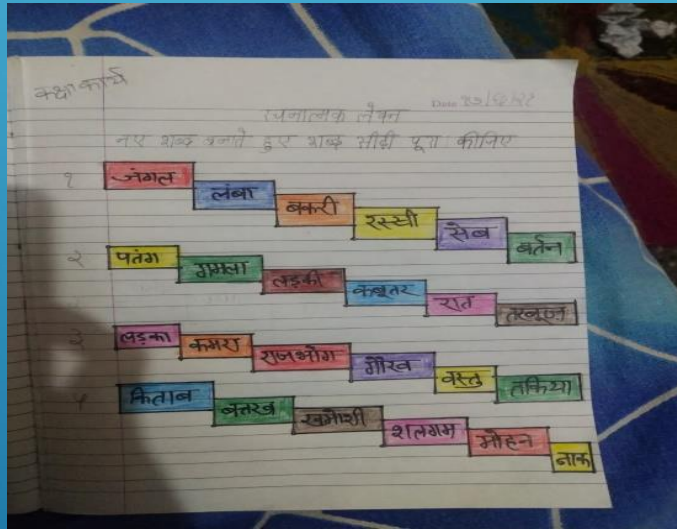 कक्षा कार्य
रचनात्मक लेखन
नए शब्द बनाते हुए शब्द सीढ़ी पूरा कीजिए
१ जंगल लंबा बकरी रस्सी सेब बर्तन
२ पतंग गमला लड़की कबूतर रात तरबूज
३ लड़का कमरा राजभोग गौरव वस्तु तकिया
४ किताब बत्तख खामोशी शलगम मोहन नाक